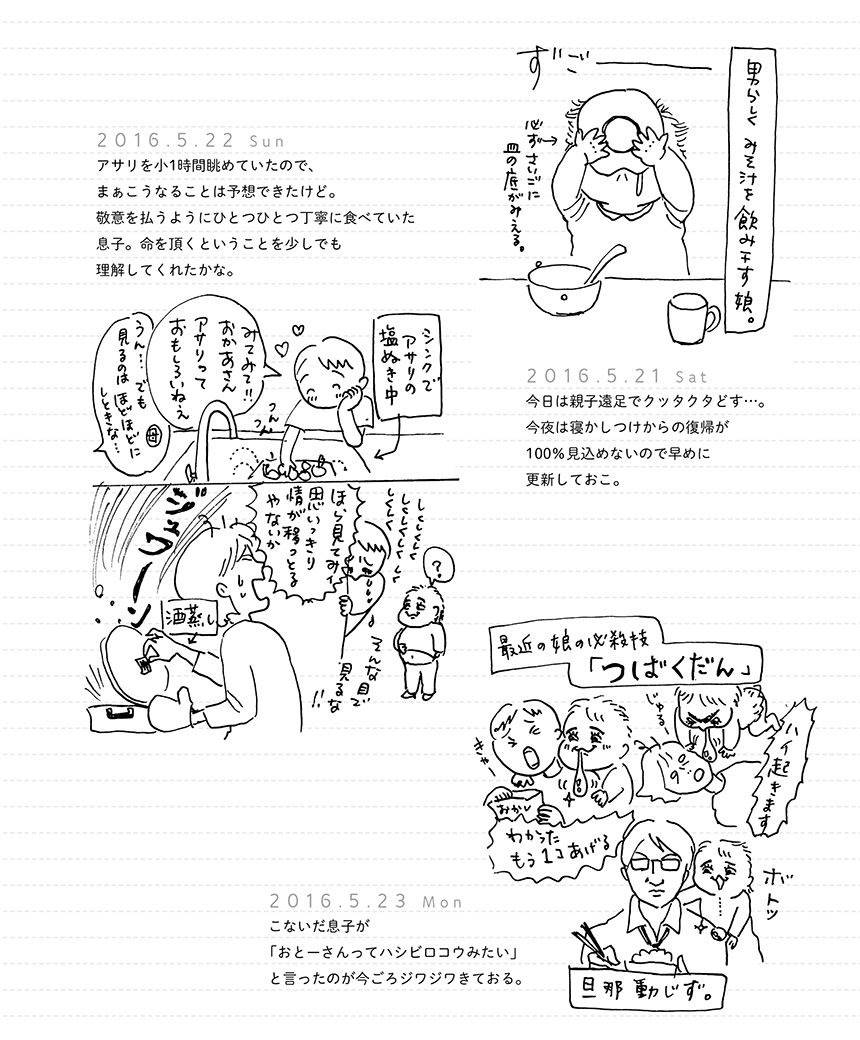 ずごーーー
男らしく みそ汁を飲み干す娘。
必ずさいごに
皿の底がみえる。
2016.5.21 Sat
今日は親子遠足でクッタクタどす…。
今夜は寝かしつけからの復帰が
100％見込めないので早めに
更新しておこ。
2016.5.22 Sun
アサリを小1時間眺めていたので、
まぁこうなることは予想できたけど。
敬意を払うようにひとつひとつ丁寧に食べていた
息子。命を頂くということを少しでも
理解してくれたかな。
シンクで
アサリの
塩ぬき中
みてみて!!
おかあさん
アサリって
おもしろいねぇ
つんつん
うん… でも
見るのは ほどほどに
しときな…
母
しくしくしくしく
しくしくしく
ほら見てみィ
思いっきり
情が移っとる
やないか
？
そんな目で
見るな!!
ジュワーン
酒蒸し
最近の娘の必殺技
「つばくだん」
きゃー
おかし
わかった
もう1コあげる
じゅる
ハイ起きます
ボトッ
旦那 動じず。
2016.5.23 Mon
こないだ息子が
「おとーさんってハシビロコウみたい」
と言ったのが今ごろジワジワきておる。